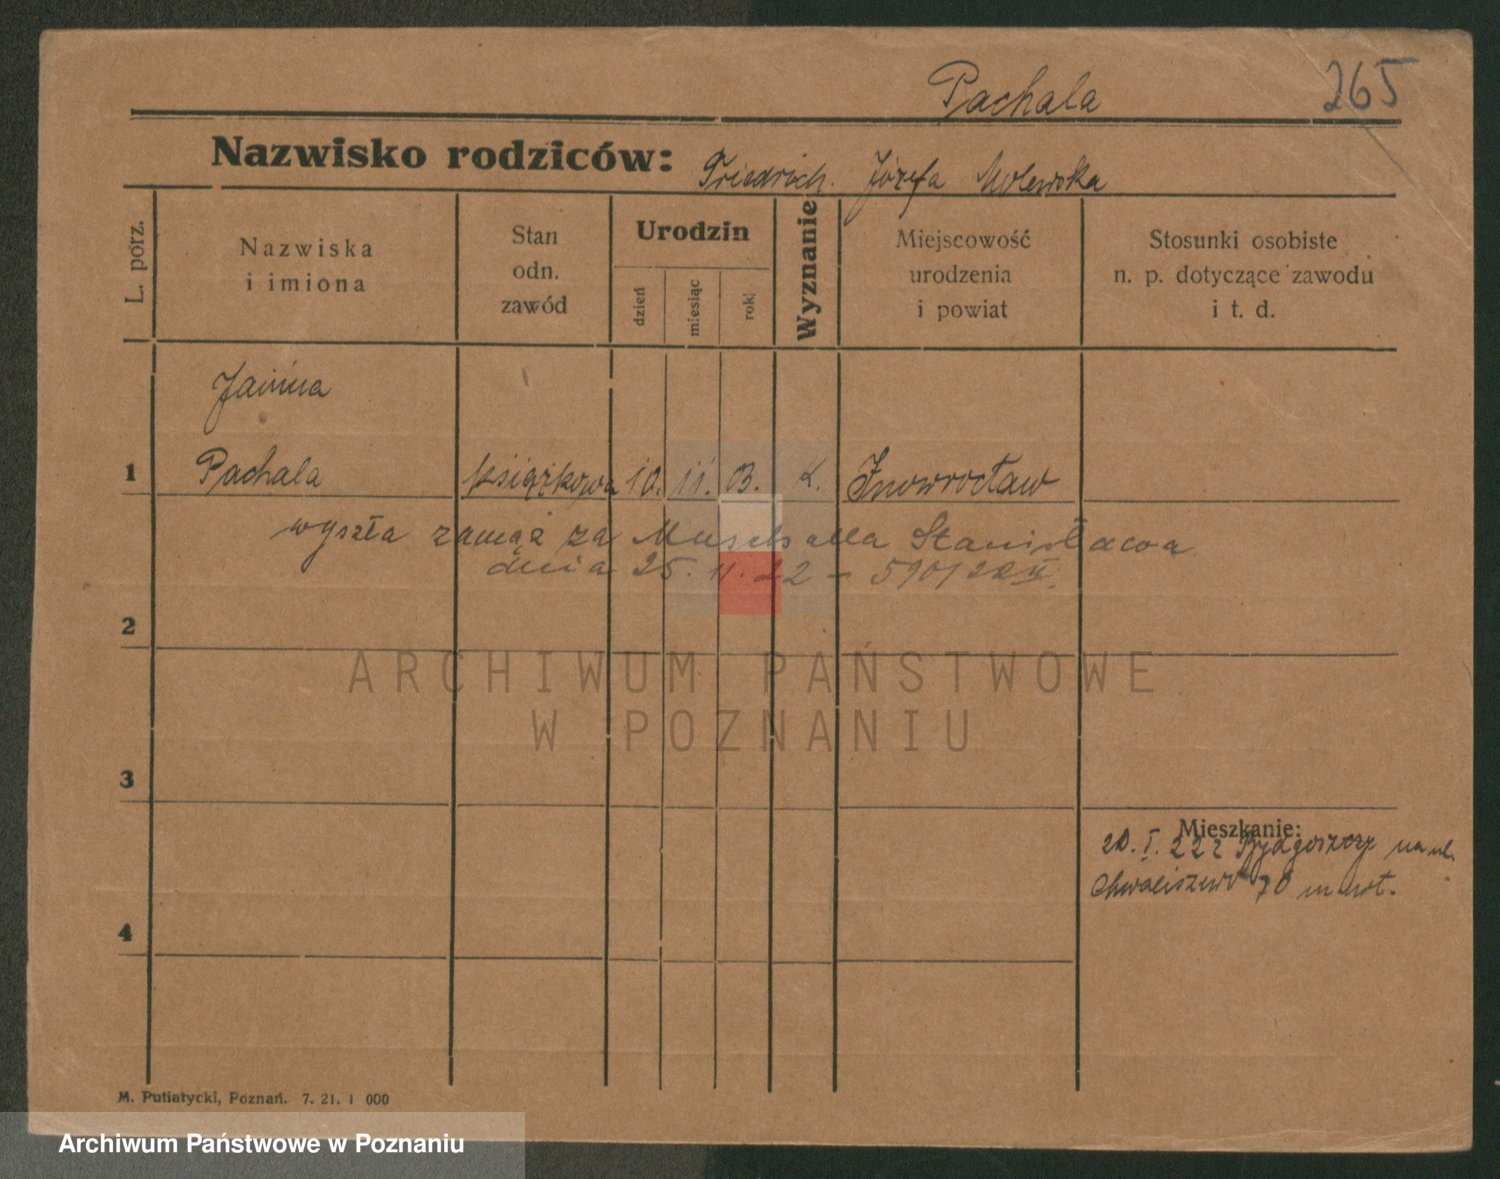 Pachala 265
Nazwisko rodziców: Friedrich. Józefa Molewska
L. porz.
Nazwiska
i imiona
Stan
odn.
zawód
Urodzin
dzień
miesiąc
rok
Wyznanie
Miejscowość
urodzenia
i powiat
Stosunki osobiste
n. p. dotyczące zawodu
i t. d.
Janina
1 Pachala książkowa 10. 11. 03. k. Inowrocław
wyszła zamąż za Stanisława
dnia 25. 11. 22 -
2
ARCHIWUM PAŃSTWOWE
W POZNANIU
3
Mieszkanie:
20. I. 22 z Bydgoszczy na ul.
Chwaliszewo 70
4
M. Putiatycki, Poznań. 7. 21. 1 000
Archiwum Państwowe w Poznaniu